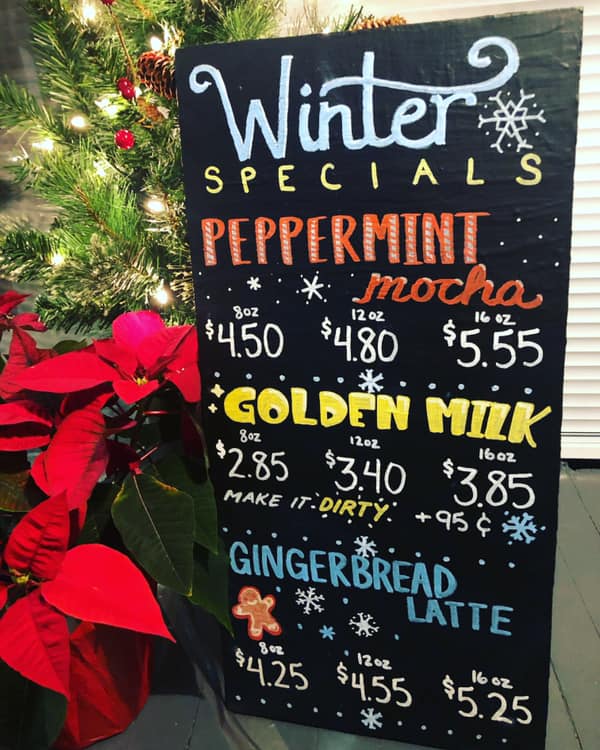 Winter
SPECIALS
PEPPERMINT
mocha
8oz 12 oz 16 oz
$4.50 $4.80 $5.55
GOLDEN MILK
8oz 12oz 16oz
$2.85 $3.40 $3.85
MAKE IT DIRTY. +95¢
GINGERBREAD
LATTE
8oz 12oz 16oz
$4.25 $4.55 $5.25